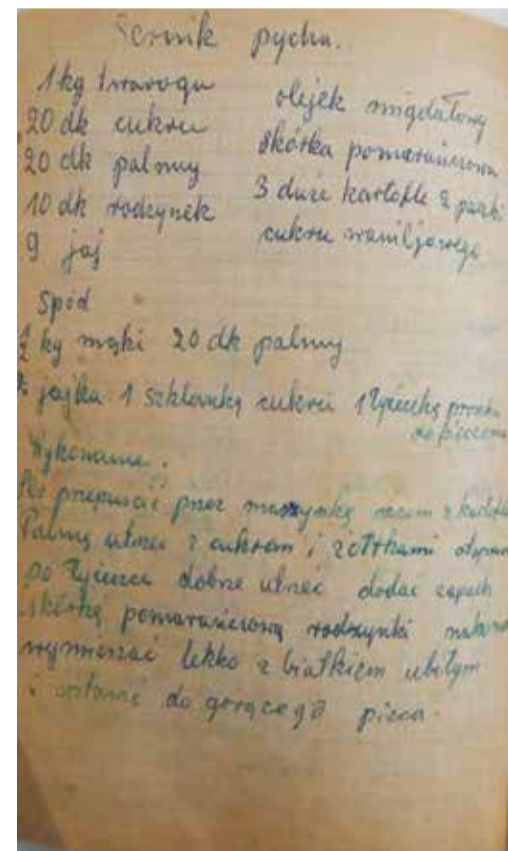 Sernik pycha.
1 kg twarogu
20 dk cukru
20 dk palmy
10 dk rodzynek
9 jaj
olejek migdałowy
skórka pomarańczowa
3 duże kartofle 2 paczki
cukru waniljowego
Spód
1/2 kg mąki 20 dk palmy
jajka 1 szklankę cukru 1 łyżeczkę proszku
do pieczenia
Wykonanie.
przepuścić przez maszynkę razem z kartofle
Palmę utrzeć z cukrem i żółtkami
po łyżeczce dobrze utrzeć dodać zapach
skórkę pomarańczową rodzynki
wymieszać lekko z białkiem ubitym
i wstawić do gorącego pieca.